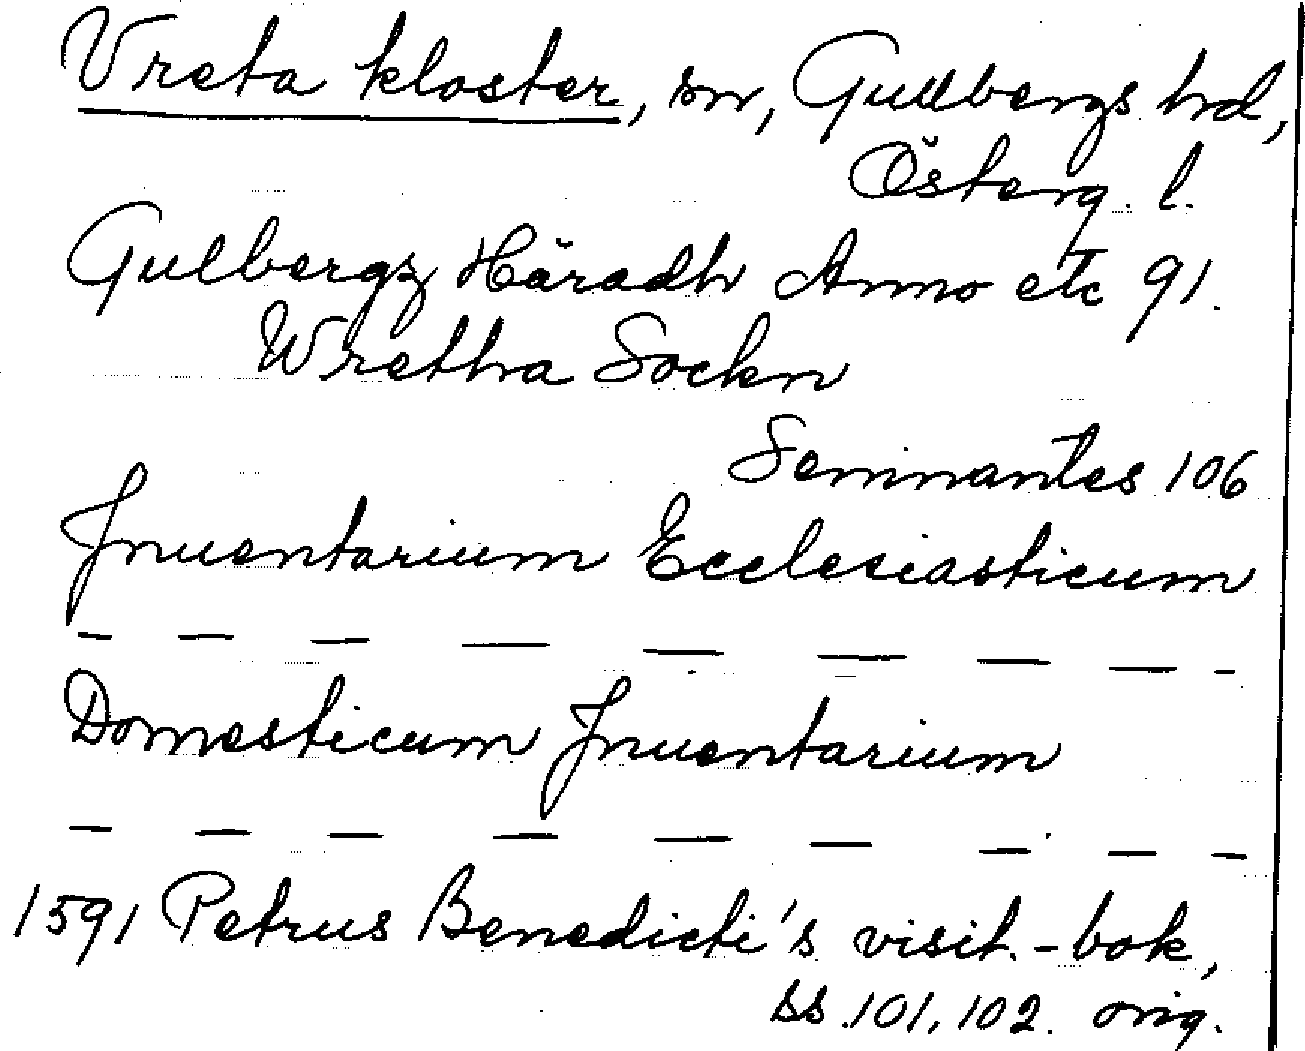 Vreta kloster, sn, Gullbergs hrd,
Österg. l.
Gulbergz Häradh Anno etc 91.
Wretha Sockn
Seminantes 106
Inuentarium Ecclesiasticum
— — — — — — — — —
Domesticum Inuentarium
— — — — — — — — —
1591 Petrus Benedicti's visit.-bok,
ss. 101, 102. orig.